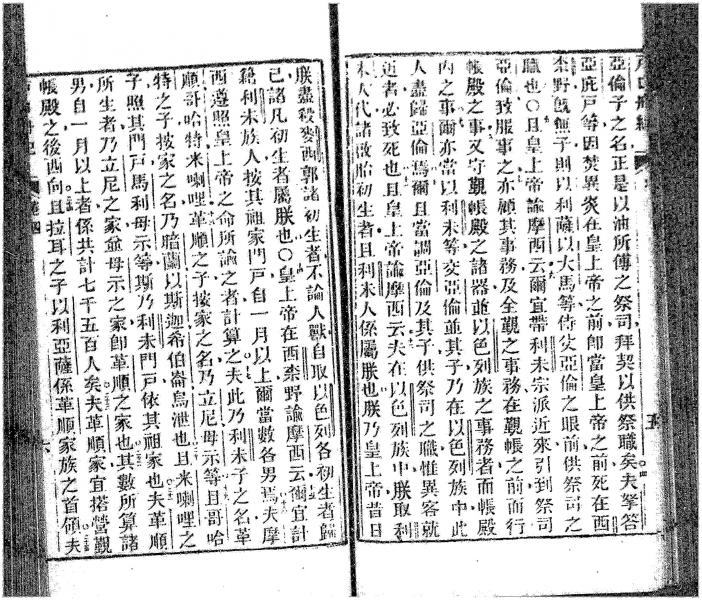 亞倫子之名正是以油所傅之祭司拜契以供祭職矣夫拏答
亞庇戸等因焚異炎在皇上帝之前卽當皇上帝之前死在西
柰野旣無子則以利薩以大馬等侍父亞倫之眼前供祭司之
職也○且皇上帝諭摩西云爾宜帶利未宗派近來引到祭司
亞倫致服事之亦顧其事務及全覲之事務在覲帳之前而行
帳殿之事又守覲帳殿之諸器並以色列族之事務者而帳殿
內之事爾亦當以利未等交亞倫並其子乃在以色列族中此
人盡歸亞倫焉爾且當調亞倫及其子供祭司之職惟異客就
近者必致死也且皇上帝諭摩西云夫在以色列族中朕取利
未人代諸啟胎初生者且利未人係屬朕也朕乃皇上帝昔日
朕盡殺麥西郭諸初生者不論人獸自取以色列各初生者歸
己諸凡初生者屬朕也○皇上帝在西柰野諭摩西云爾宜計
籍利未族人按其祖家門戸自一月以上爾當數各男焉夫摩
西遵照皇上帝之命所諭之者計算之夫此乃利未子之名革
順哥哈特米喇哩革順之子按家之名乃立尼母示等且哥哈
特之子按家之名乃暗蘭以斯迦希伯崙烏泄也且米喇哩之
子照其門戸馬利母示等斯乃利未門戸依其祖家也夫革順
所生者乃立尼之家並母示之家卽革順之家也其數所算諸
男自一月以上者係共計七千五百人矣夫革順家宜搭營覲
帳殿之後西向且拉耳之子以利亞薩係革順家族之首領夫